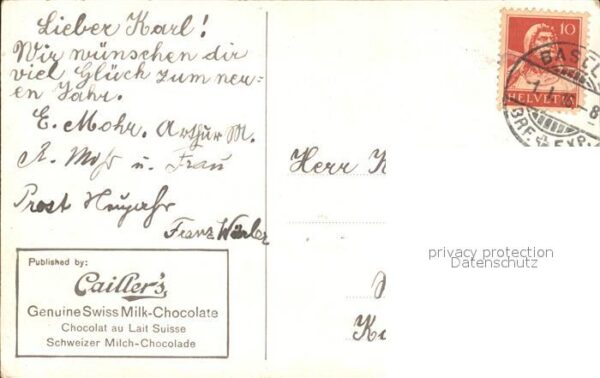 Lieber Karl!
Wir wünschen dir
viel Glück zum neu=
en Jahr.
E. Mohr. Arthur M.
A. Mohr u. Frau
Prost Neujahr
Franz
Published by:
Cailler's
Genuine Swiss Milk-Chocolate
Chocolat au Lait Suisse
Schweizer Milch-Chocolade
10
HELVETIA
BASEL
BRF. EXP.
Herr K
privacy protection
Datenschutz